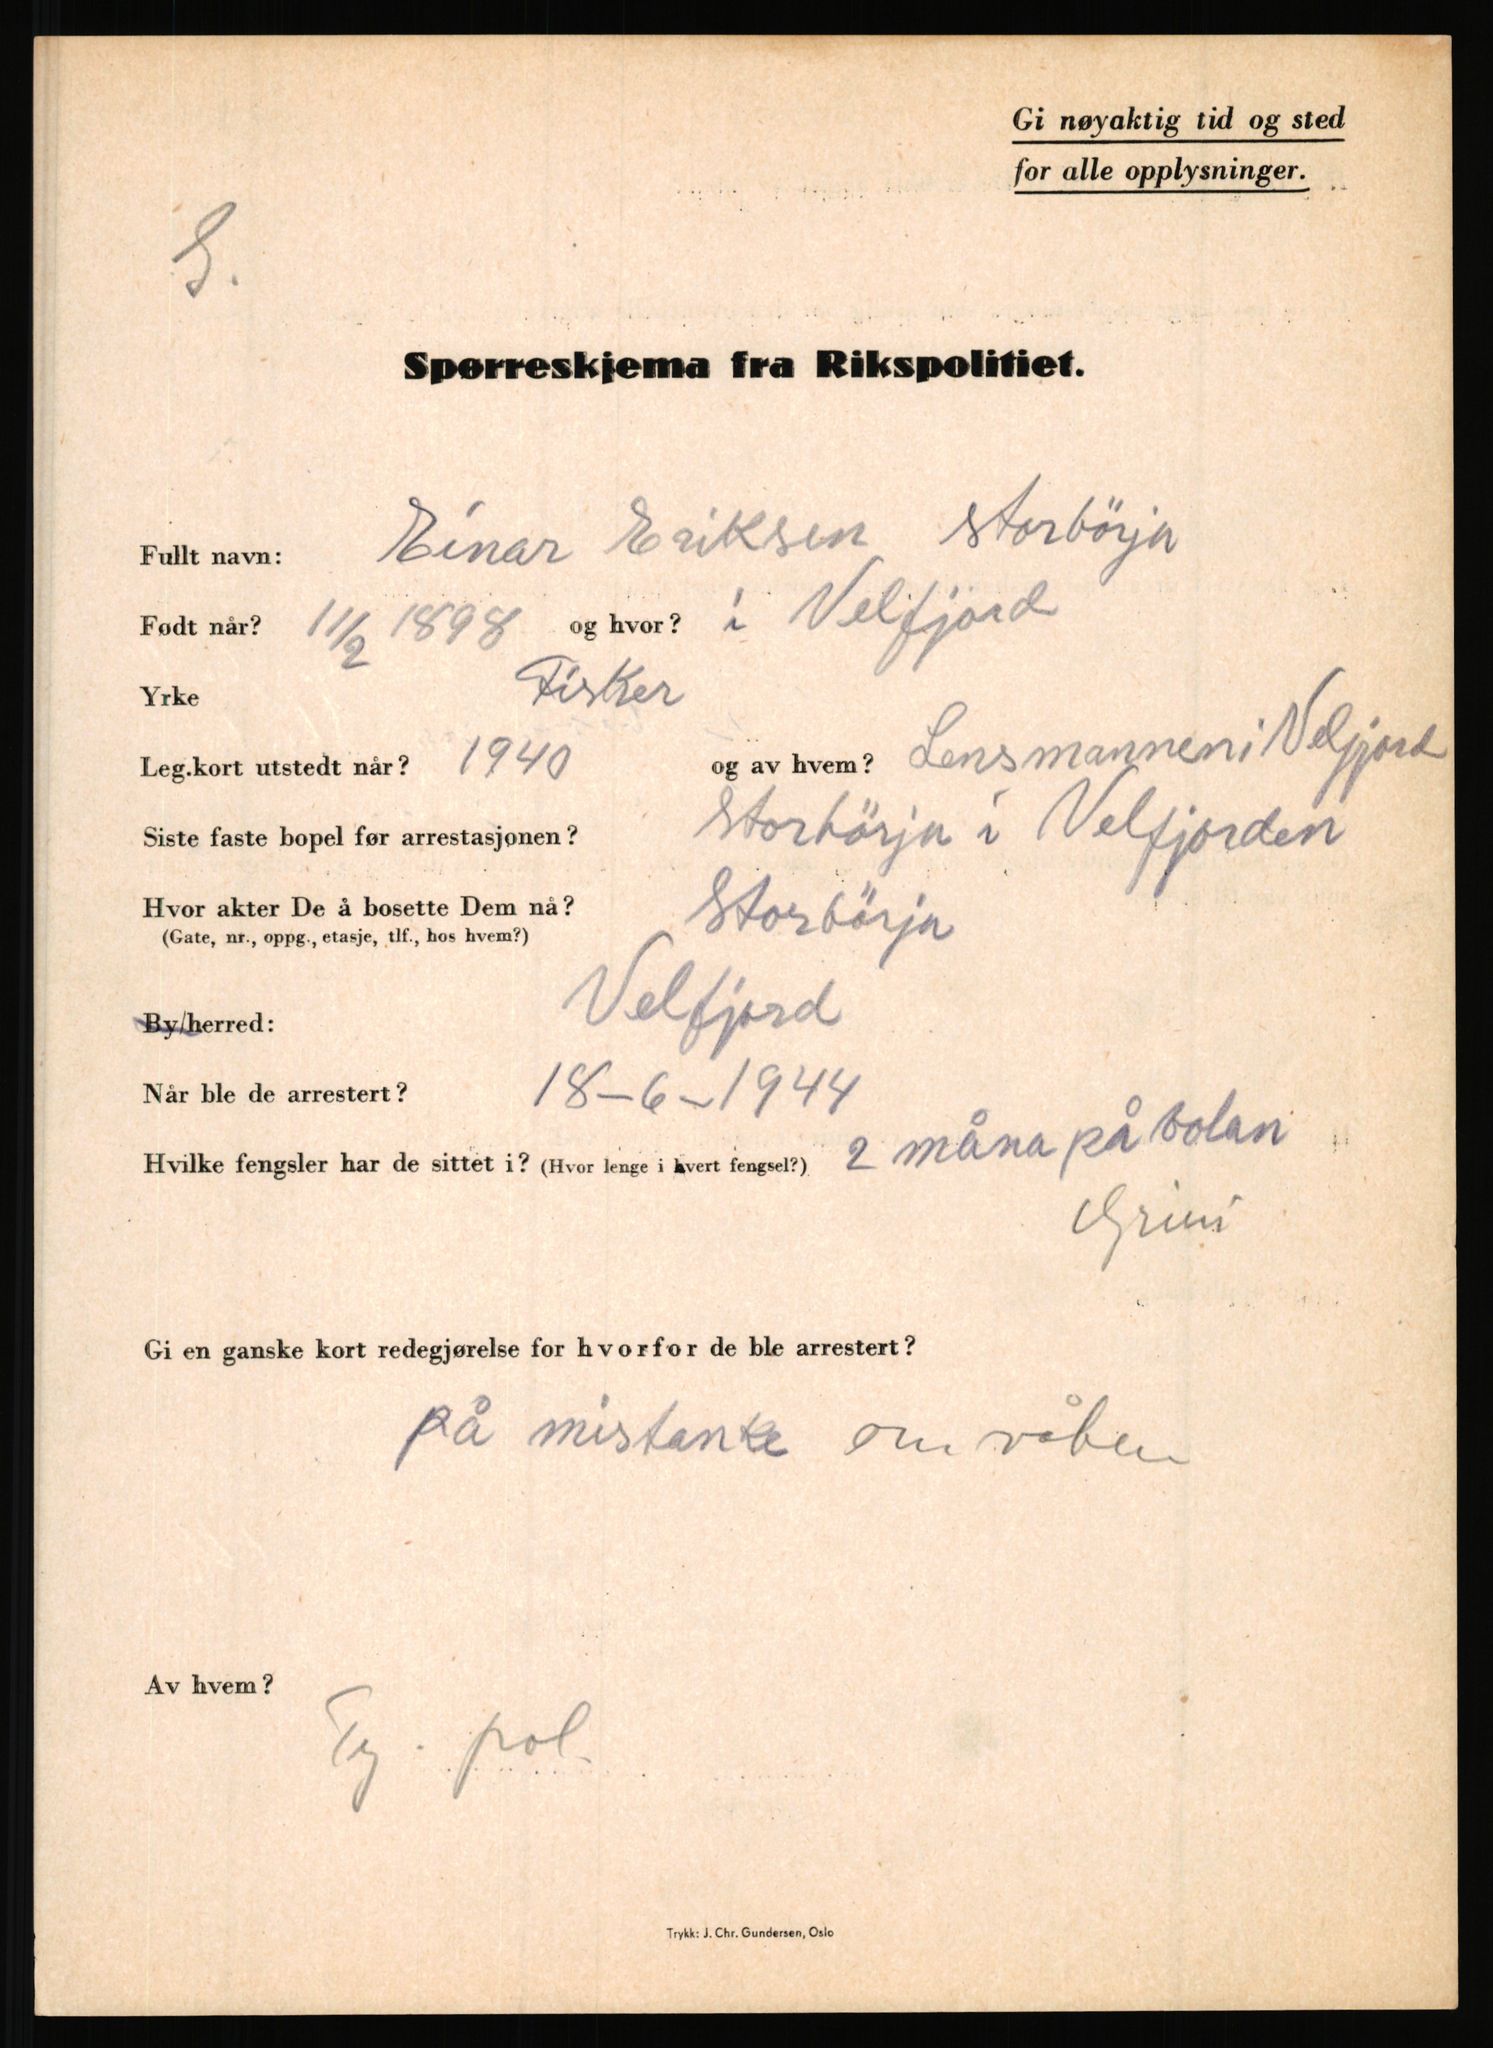 Gi nøyaktig tid og sted
for alle opplysninger.
S.
Spørreskjema fra Rikspolitiet.
Fullt navn: Einar Eriksen Storbörja
Født når? 11/2 1898 og hvor? i Velfjord
Yrke Fisker
Leg.kort utstedt når? 1940 og av hvem? Lensmannen i Velfjord
Siste faste bopel før arrestasjonen? Storbörja i Velfjorden
Hvor akter De å bosette Dem nå? Storbörja
(Gate, nr., oppg., etasje, tlf., hos hvem?)
By/herred: Velfjord
Når ble de arrestert? 18-6-1944
Hvilke fengsler har de sittet i? (Hvor lenge i hvert fengsel?) 2 måna på bolan
Grini
Gi en ganske kort redegjørelse for hvorfor de ble arrestert?
på mistanke om våben
Av hvem?
Ty. pol.
Trykk: J. Chr. Gundersen, Oslo